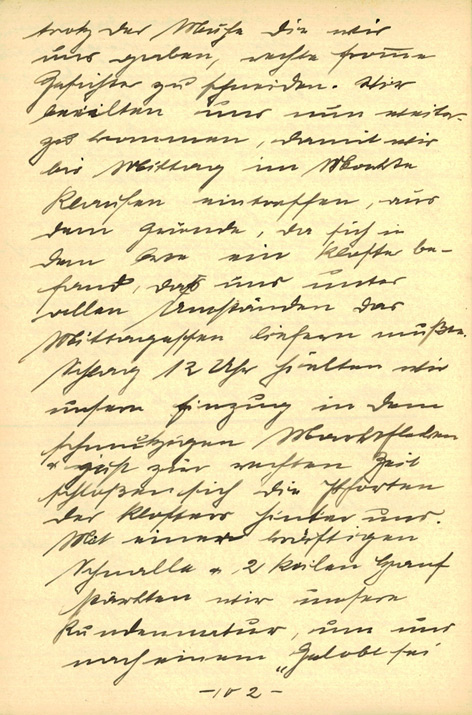 trotz der Mühe die wir
uns gaben, rechte fromme
Gesichter zu schneiden. Wir
beeilten uns nun weiter-
zukommen, damit wir
bis Mittag im Markte
Klausen eintreffen, aus
dem Grunde, da sich in
dem Orte ein Kloster be-
fand, daß uns unter
allen Umständen das
Mittagessen liefern mußte.
Schlag 12 Uhr hielten wir
unsern Einzug in dem
schmutzigen Marktflecken
u. just zur rechten Zeit
schloßen sich die Pforten
der Klosters hinter uns.
Mit einer kräftigen
Schnalle u. 2 Keilen Hanf
stärkten wir unsere
Kundennatur, um uns
nach einem „Gelobt sei
-102-